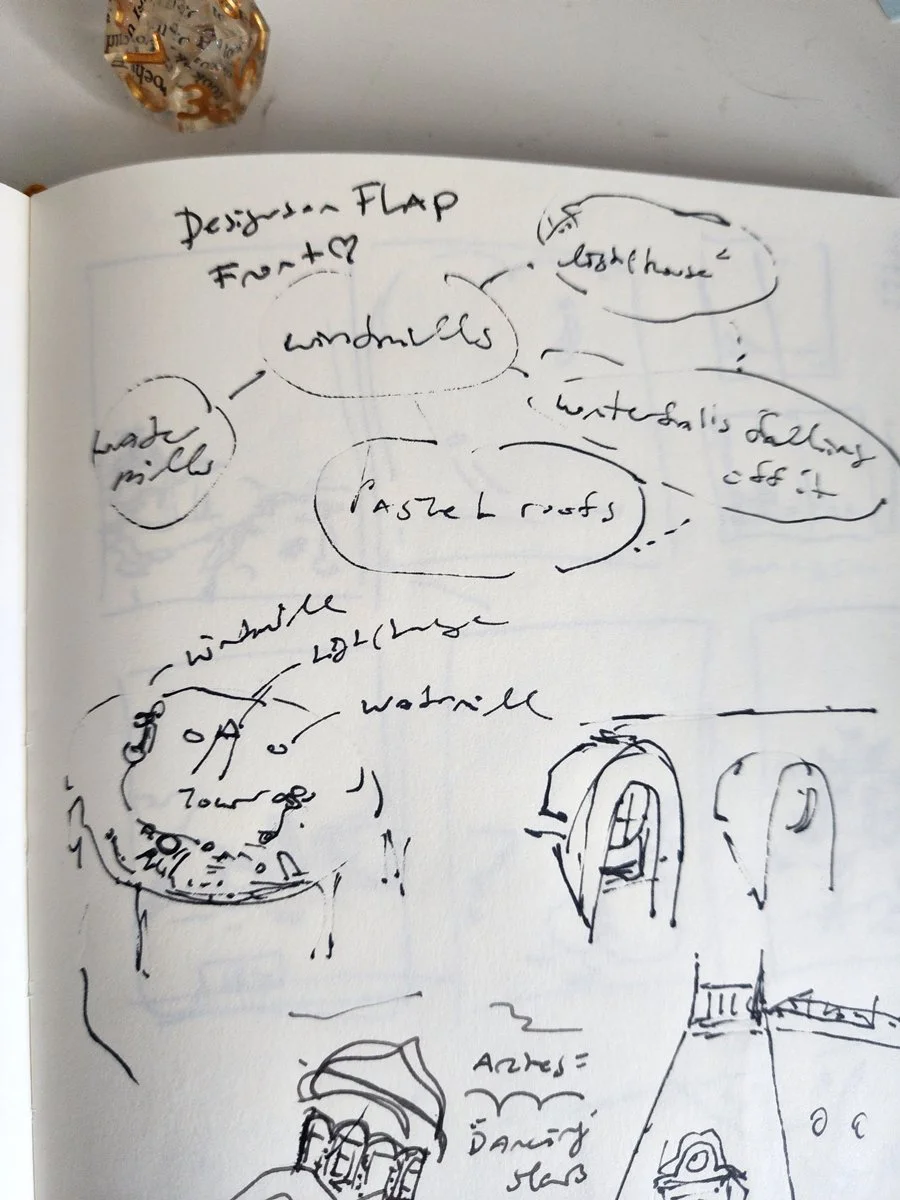 Designs on FLAP
Front♡
lighthouse
windmills
waterfalls falling
off it
water
mills
PASTEL roofs
windmill
Lighthouse
watermill
Dancing
stars